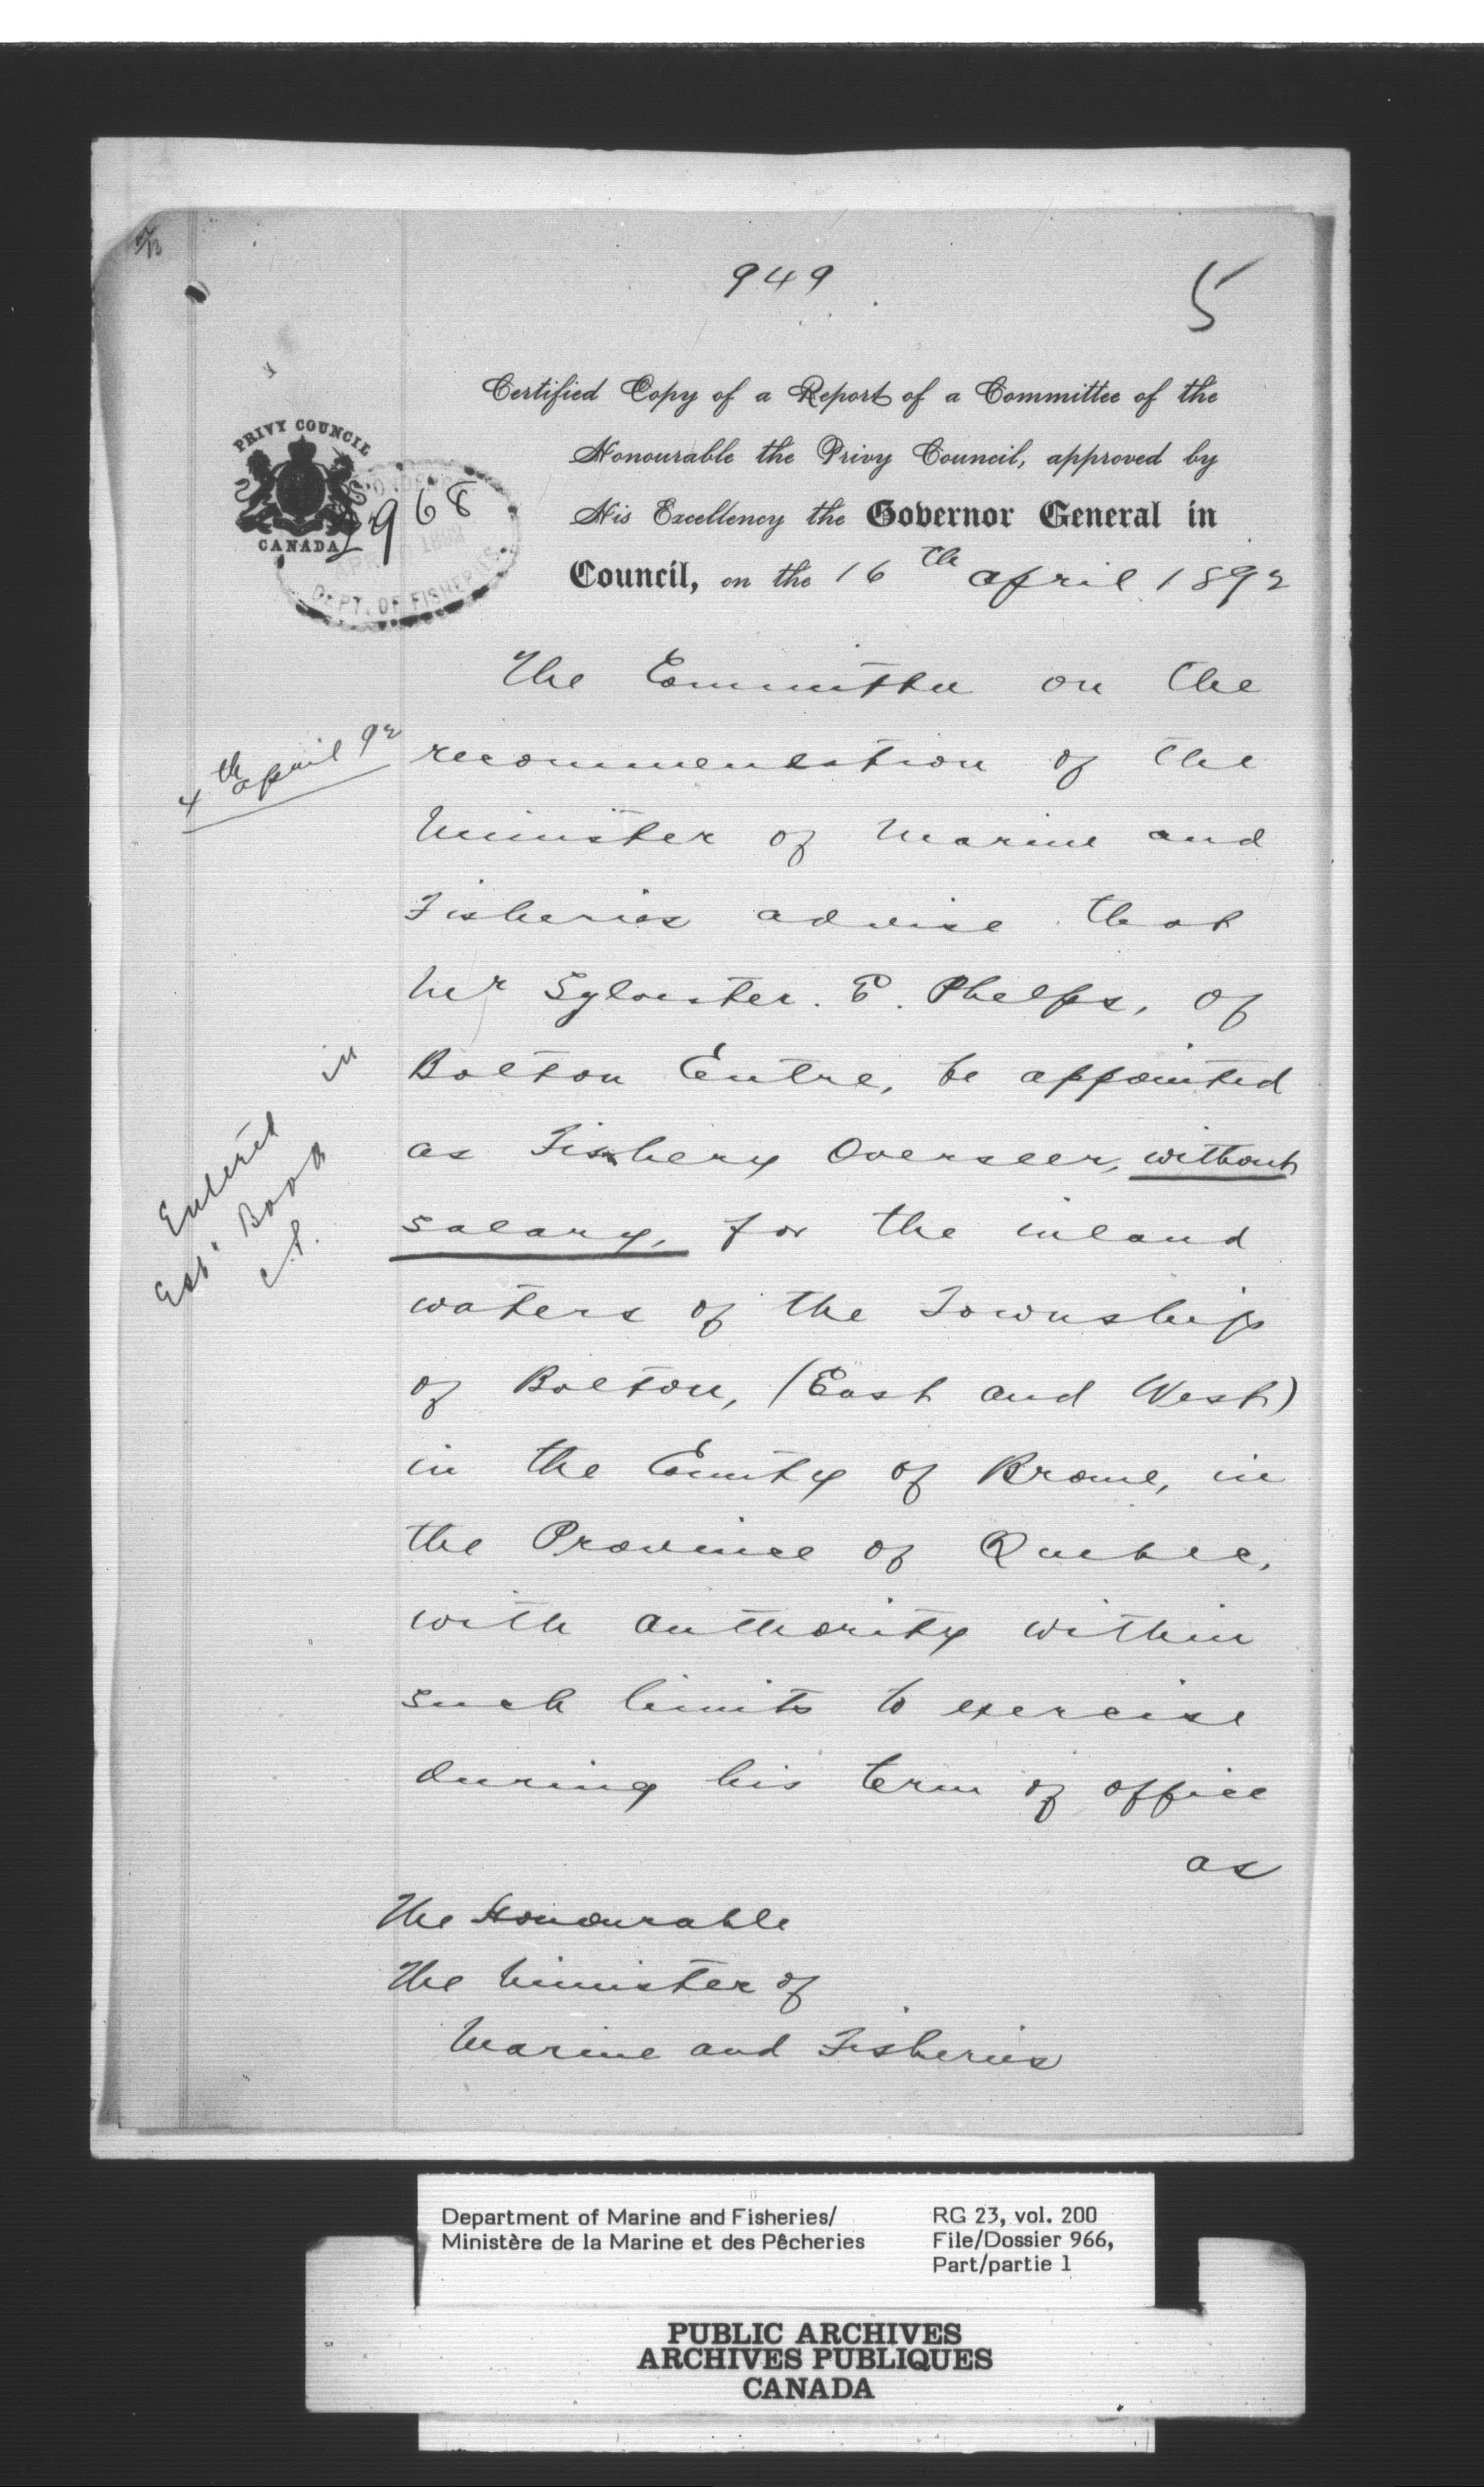 949
5
Certified Copy of a Report of a Committee of the
Honourable the Privy Council, approved by
His Excellency the Governor General in
Council, on the 16th April 1892
PRIVY COUNCIL
CANADA
968
DEPT. OF FISHERIES
The Committee on the
4th April 92
recommendation of the
Minister of Marine and
Fisheries advise that
Mr Sylvester. E. Phelps, of
Bolton Centre, be appointed
as Fishery Overseer, without
salary, for the inland
waters of the Township
of Bolton, (East and West)
in the County of Brome, in
the Province of Quebec,
with authority within
such limits to exercise
during his term of office
as
Entered in
Book
The Honourable
The Minister of
Marine and Fisheries
Department of Marine and Fisheries/
Ministère de la Marine et des Pêcheries
RG 23, vol. 200
File/Dossier 966,
Part/partie 1
PUBLIC ARCHIVES
ARCHIVES PUBLIQUES
CANADA